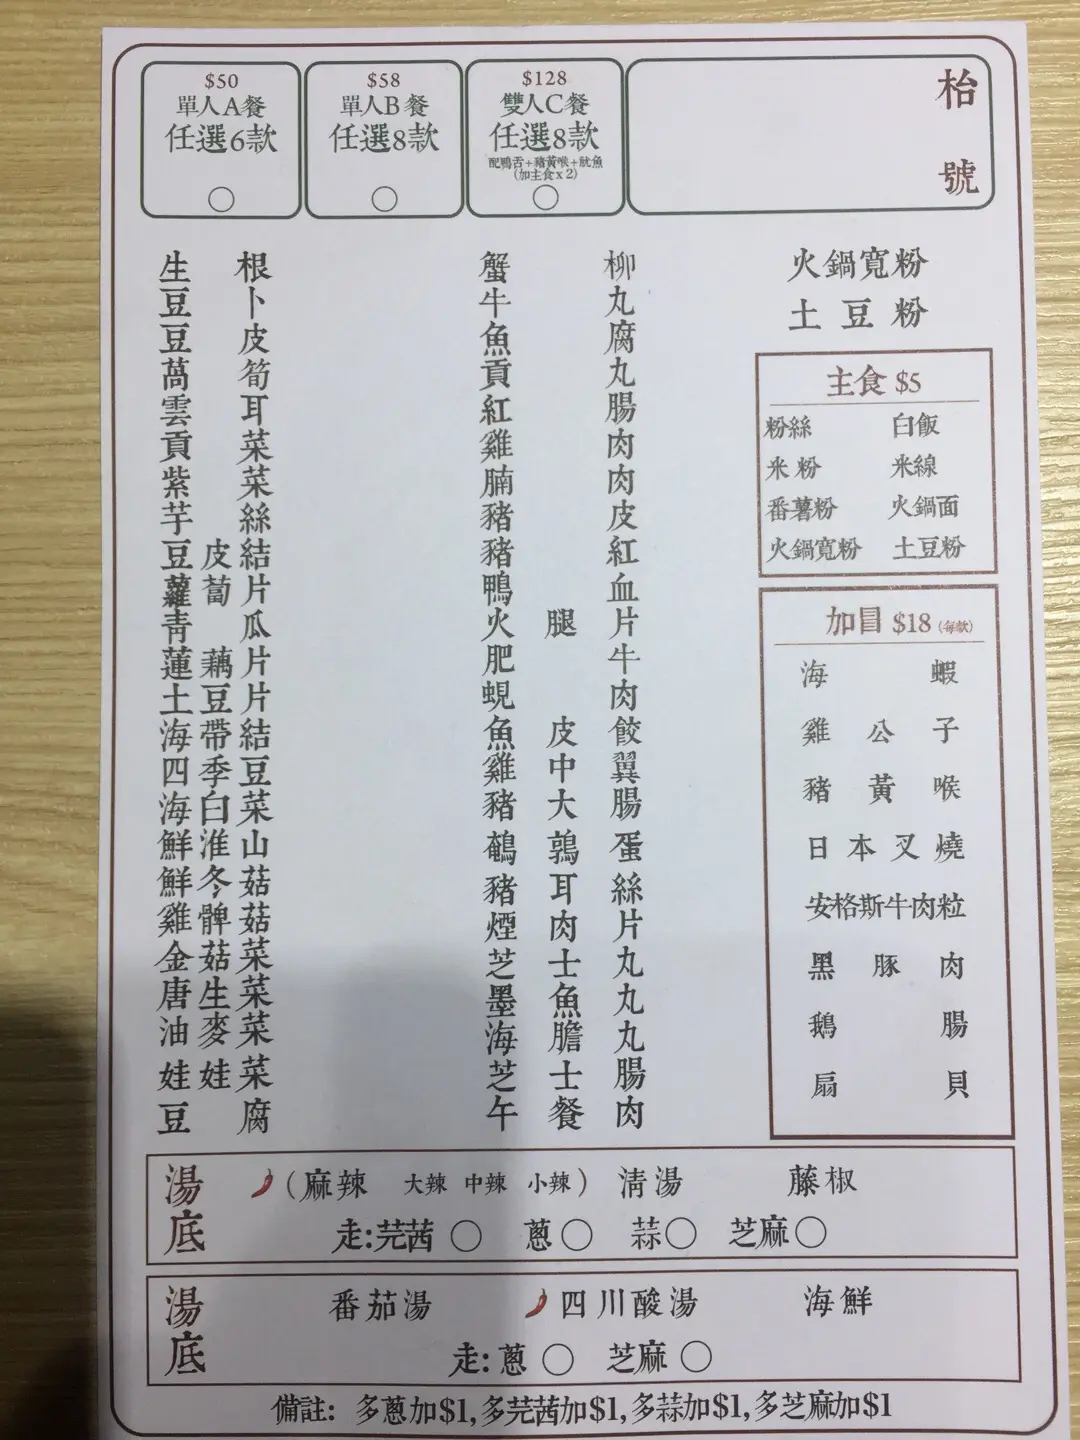 $50
單人A餐
任選6款
$58
單人B餐
任選8款
$128
雙人C餐
任選8款
配鴨舌+豬黃喉+魷魚
(加主食x2)
枱號
生根
豆卜
豆皮
萵筍
雲耳
貢菜
紫菜
芋絲
豆皮結
蘿蔔片
青瓜
蓮藕片
土豆片
海帶結
四季豆
海白菜
鮮淮山
鮮冬菇
雞髀菇
金菇菜
唐生菜
油麥菜
娃娃菜
豆腐
蟹柳
牛丸
魚腐
貢丸
紅腸
雞肉
腩肉
豬皮
豬紅
鴨血
火腿片
肥牛
蜆肉
魚皮餃
雞中翼
豬大腸
鵪鶉蛋
豬耳絲
煙肉片
芝士丸
墨魚丸
海膽丸
芝士腸
午餐肉
火鍋寬粉
土豆粉
主食 $5
粉絲 白飯
米粉 米線
番薯粉 火鍋面
火鍋寬粉 土豆粉
加冒 $18 (每款)
海蝦
雞公子
豬黃喉
日本叉燒
安格斯牛肉粒
黑豚肉
鵝腸
扇貝
湯底
(麻辣 大辣 中辣 小辣) 清湯 藤椒
走:芫茜 蔥 蒜 芝麻
湯底
番茄湯 四川酸湯 海鮮
走:蔥 芝麻
備註: 多蔥加$1,多芫茜加$1,多蒜加$1,多芝麻加$1